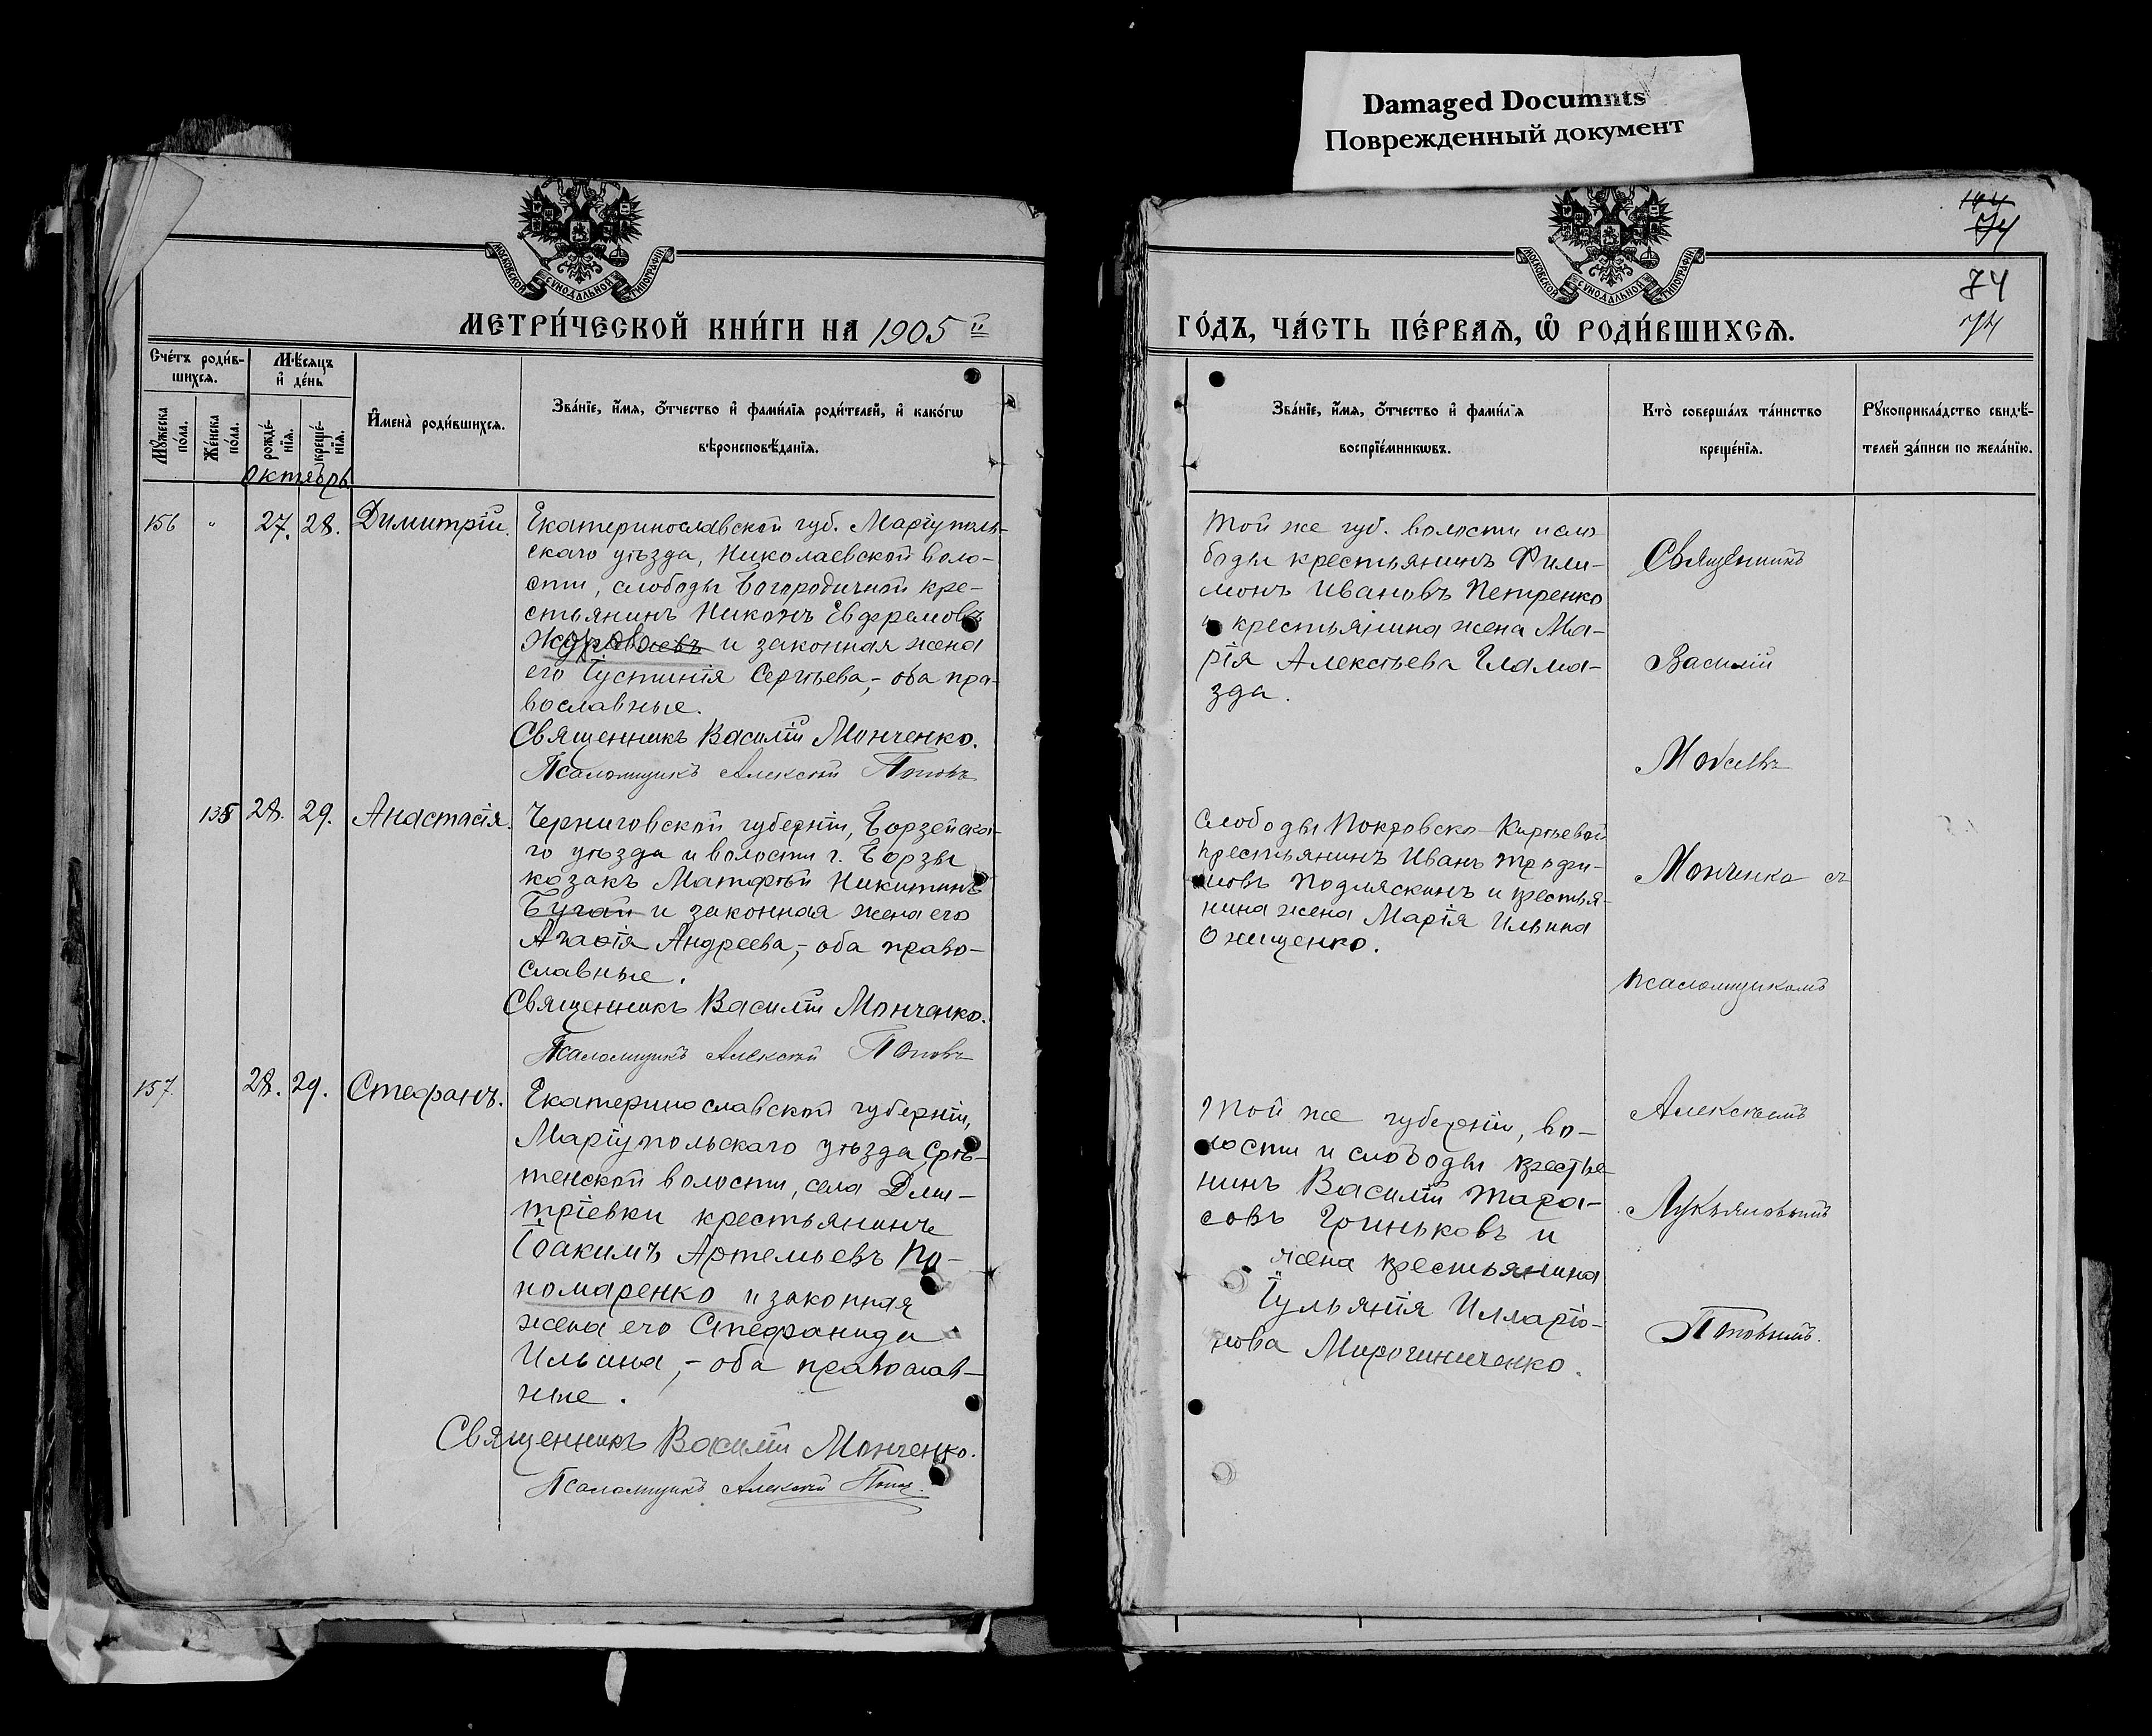 Damaged Documnts
Поврежденный документ
МОСКОВСКОЙ СѴНОДАЛЬНОЙ ТИПОГРАФІИ
МЕТРИ́ЧЕСКОЙ КНИ́ГИ НА 1905 й
Сче́тъ роди́в-
шихсѧ.
Мѣ́сѧцъ
и҆ де́нь
Мꙋ́жеска по́ла.
Же́нска по́ла.
рожде́-
нїѧ.
креще́-
нїѧ.
И҆мена̀ роди́вшихсѧ.
Зва́нїе, и҆́мѧ, ѻ҆́тчество и҆ фами́лїѧ роди́телей, и҆ како́гѡ
вѣроисповѣ́данїѧ.
Октябрь
156 " 27. 28. Димитрій.
Екатеринославской губ. Маріуполь-
скаго уѣзда, Николаевской воло-
сти, слободы Богородичной кре-
стьянинъ Никонъ Евфремовъ
и законная жена
его Іустинія Сергѣева,- оба пра-
вославные.
Священникъ Василій Монченко.
Псаломщикъ Алексѣй Поповъ
135 28. 29. Анастасія.
Черниговской губерніи, Борзенска-
го уѣзда и волости г. Борзны
козакъ Матфѣй Никитинъ
Бугай и законная жена его
Агафія Андреева,- оба право-
славные.
Священникъ Василій Монченко.
Псаломщикъ Алексѣй Поповъ
157. 28. 29. Стефанъ.
Екатеринославской губерніи,
Маріупольскаго уѣзда Срѣ-
тенской волости, села Дми-
тріевки крестьянинъ
Іоакимъ Артемьевъ По-
номаренко и законная
жена его Стефанида
Ильина,- оба православ-
ные.
Священникъ Василій Монченко.
Псаломщикъ Алексѣй Поповъ
МОСКОВСКОЙ СѴНОДАЛЬНОЙ ТИПОГРАФІИ
74
74
ГО́ДЪ, ЧА́СТЬ ПЕ́РВАѦ, Ѡ҆ РОДИ́ВШИХСѦ.
Зва́нїе, и҆́мѧ, ѻ҆́тчество и҆ фами́лїѧ
воспрїе́мникѡвъ.
Кто̀ соверша́лъ та́инство
креще́нїѧ.
Рꙋкоприкла́дство свидѣ́-
телей за́писи по жела́нїю.
Той же губ. волости и сло
боды крестьянинъ Фили-
монъ Ивановъ Петренко
и крестьянина жена Ма-
рія Алексѣева Глама-
зда.
Слободы Покровско-Кирѣевой
крестьянинъ Иванъ Трофи-
мовъ Подляскинъ и крестья-
нина жена Марія Ильина
Онищенко.
Той же губерніи, во-
лости и слободы крестья-
нинъ Василій Тара-
совъ Гриньковъ и
жена крестьянина
Іульянія Илларіо-
нова Мирошниченко.
Священникъ
Василій
Монченко съ
псаломщикомъ
Алексѣемъ
Лукьяновымъ
Поповымъ.